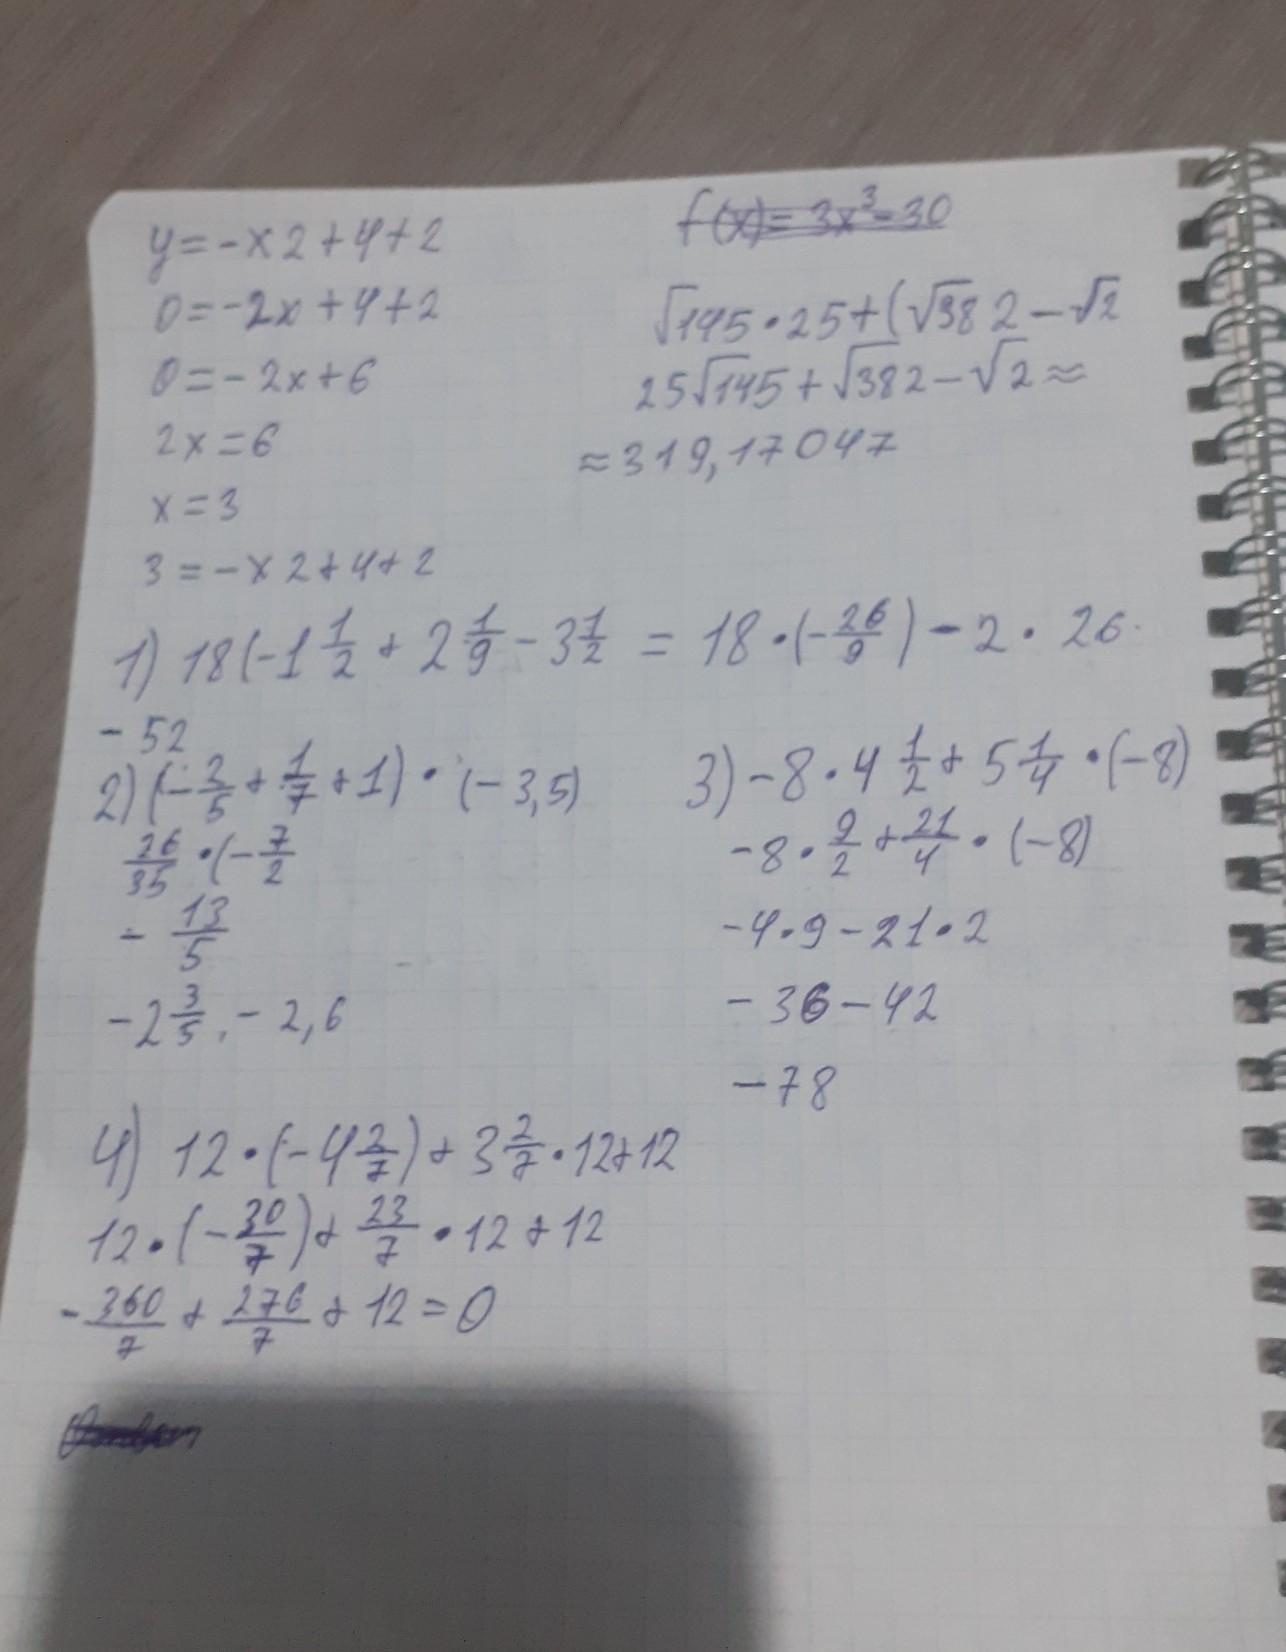 y=-x2+4+2
0=-2x+4+2
0=-2x+6
2x=6
x=3
3=-x2+4+2
f(x)=3x³-30
√145·25+(√382-√2
25√145+√382-√2≈
≈319,17047
1) 18(-1 1/2+2 1/9-3 1/2 = 18·(-26/9)-2·26
-52
2) (-2/5+1/7+1)·(-3,5)
26/35·(-7/2
-13/5
-2 3/5, -2,6
3) -8·4 1/2+5 1/4·(-8)
-8·9/2+21/4·(-8)
-4·9-21·2
-36-42
-78
4) 12·(-4 2/7)+3 2/7·12+12
12·(-30/7)+23/7·12+12
-360/7+276/7+12=0